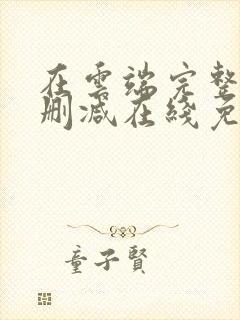 在雲端完整
刪減在綫免
童子賢